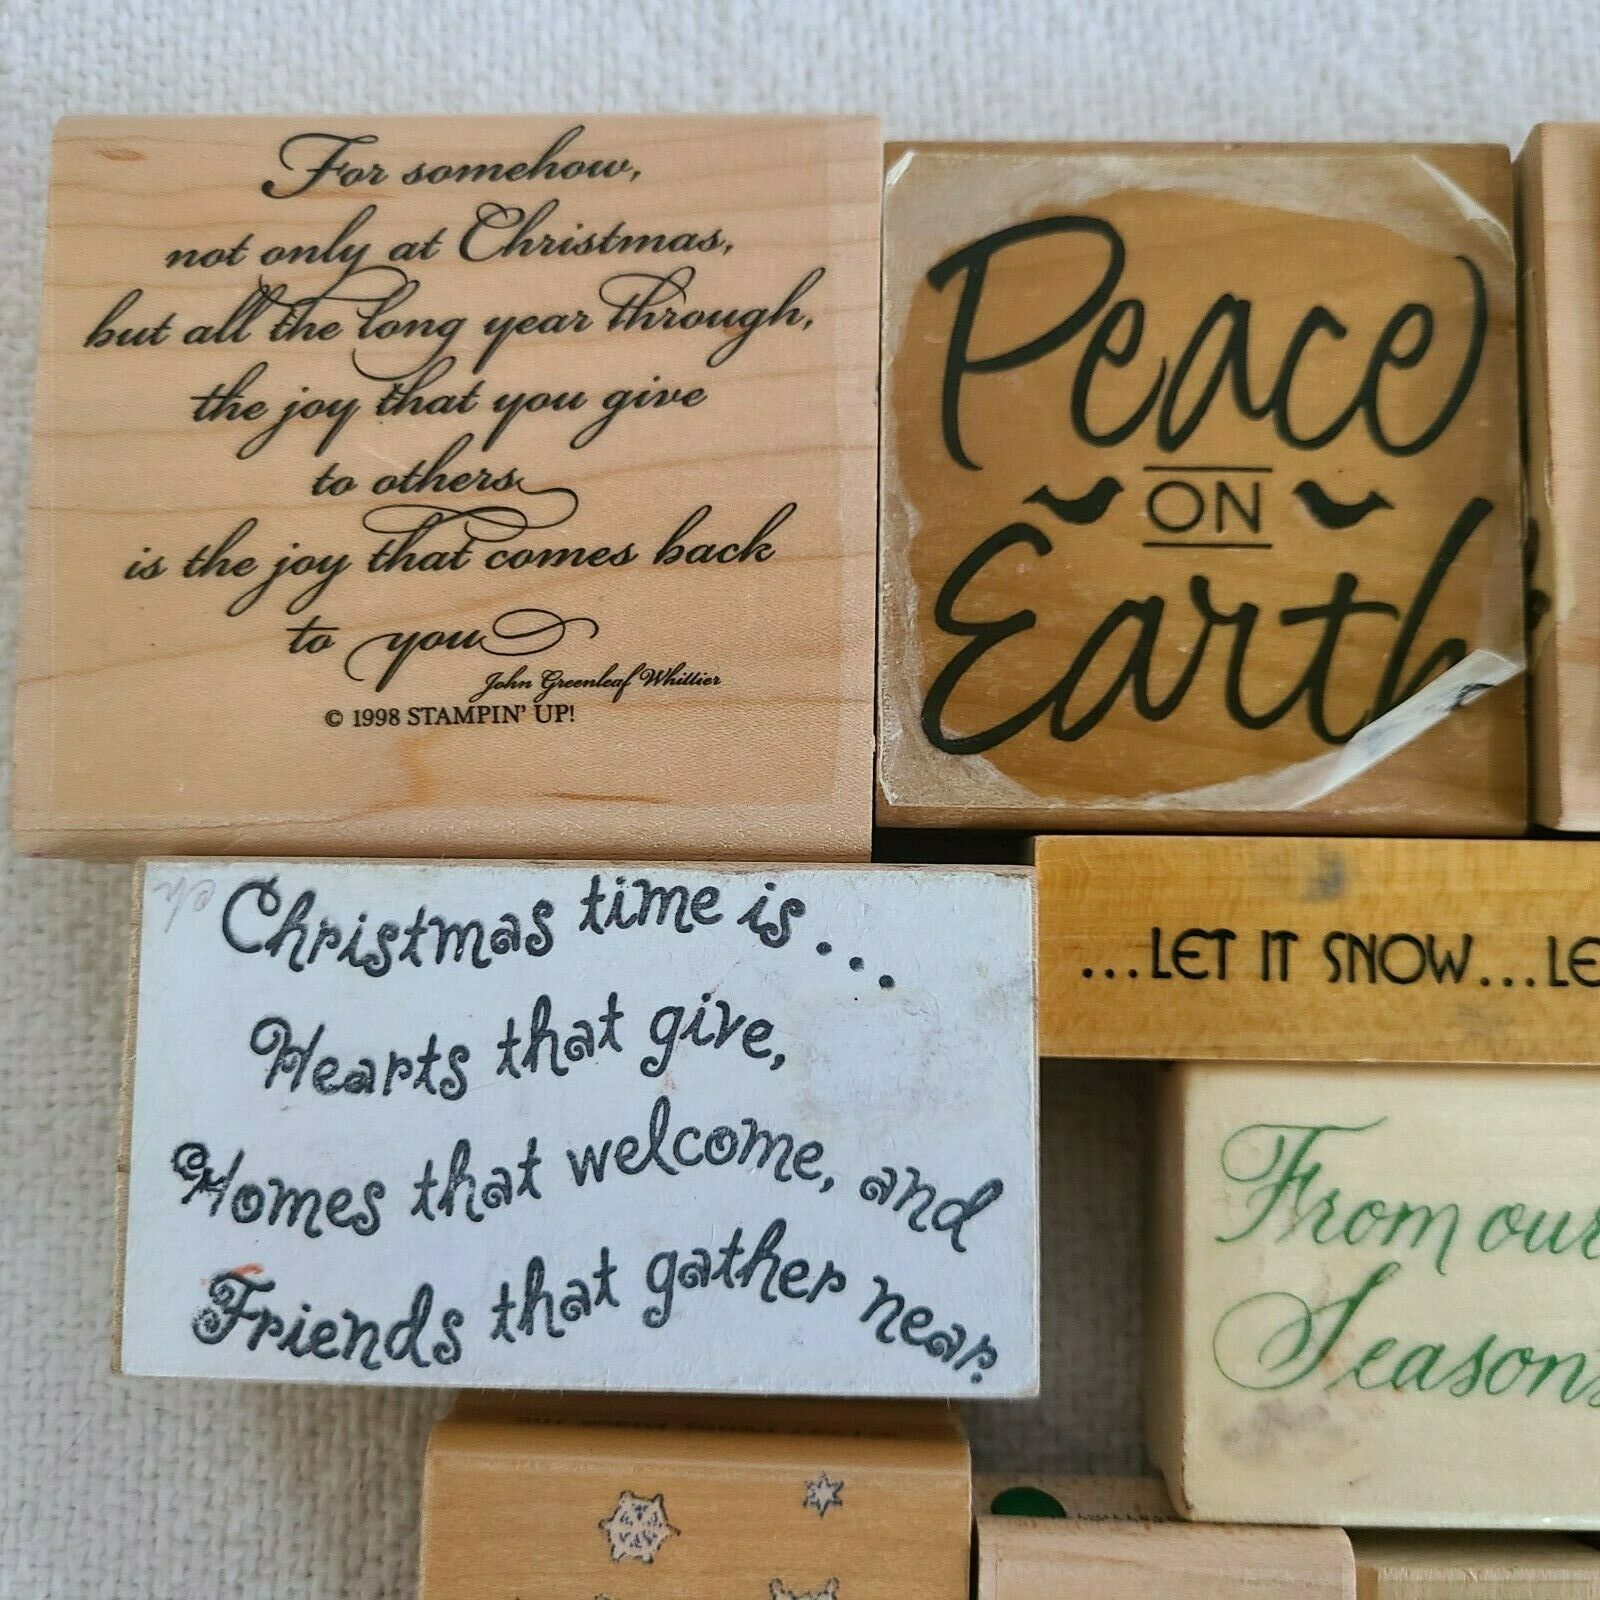 For somehow,
not only at Christmas,
but all the long year through,
the joy that you give
to others
is the joy that comes back
to you
John Greenleaf Whittier
© 1998 STAMPIN' UP!
Peace
ON
Earth
Christmas time is...
Hearts that give,
Homes that welcome, and
Friends that gather near.
...LET IT SNOW...LE
From our
Seasons